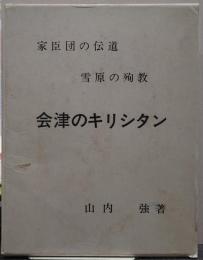 家臣団の伝道
雪原の殉教
会津のキリシタン
山内 強著